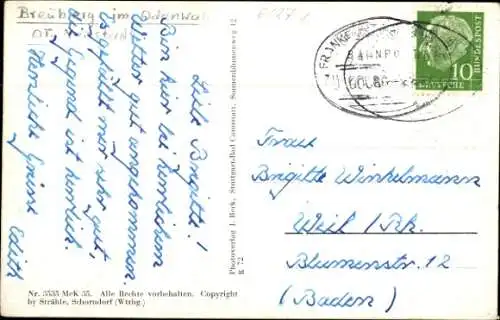 Breuberg im Odenwald
Lieb Brigitte!
Bin hier bei herrlichem
Wetter gut angekommen.
Es gefällt mir sehr gut,
die Gegend ist herrlich.
Herzliche Grüsse
Edith
Nr. 3535 McK 35. Alle Rechte vorbehalten. Copyright
by Strähle, Schorndorf (Wttbg.)
Photoverlag I. Beck, Stuttgart-Bad Cannstatt, Sonnenblumenweg 12
R 72
BAHNPOST
10
BUNDESPOST
Frau
Brigitte Winkelmann
Weil / Rh.
Blumenstr. 12
(Baden)